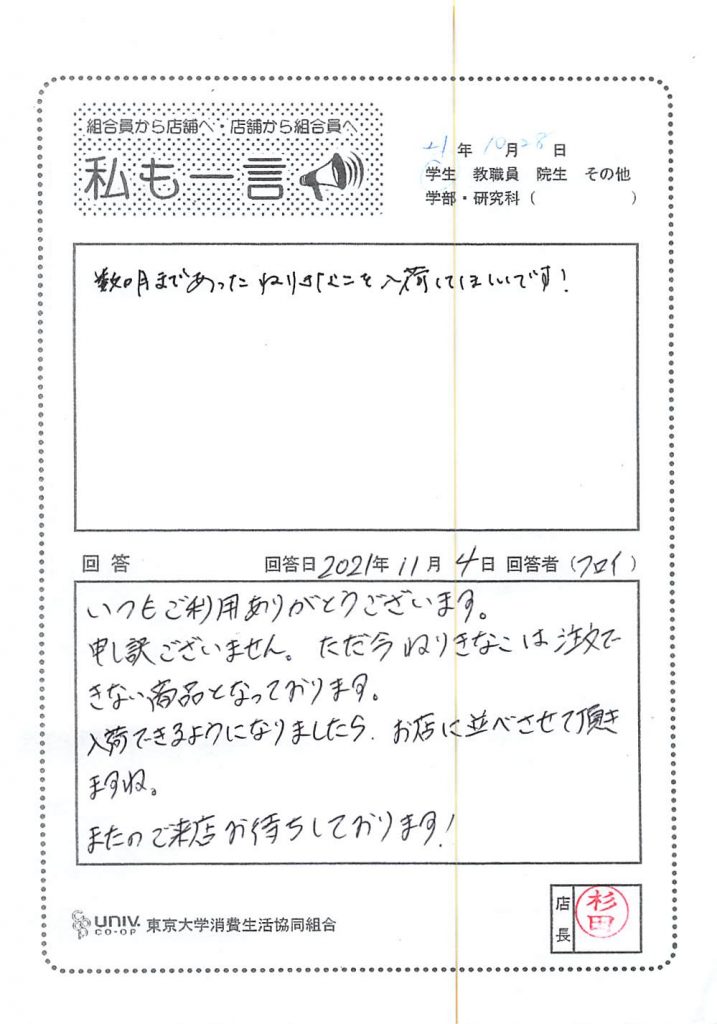 組合員から店舗へ・店舗から組合員へ
私も一言
21年10月28日
学生 教職員 院生 その他
学部・研究科（ ）
数ヶ月まであったねりきなこを入荷してほしいです！
回答 回答日2021年11月4日 回答者（フロイ）
いつもご利用ありがとうございます。
申し訳ございません。ただ今ねりきなこは注文で
きない商品となっております。
入荷できるようになりましたら、お店に並べさせて頂き
ますね。
またのご来店お待ちしております！
UNIV. CO-OP 東京大学消費生活協同組合
店長 杉田